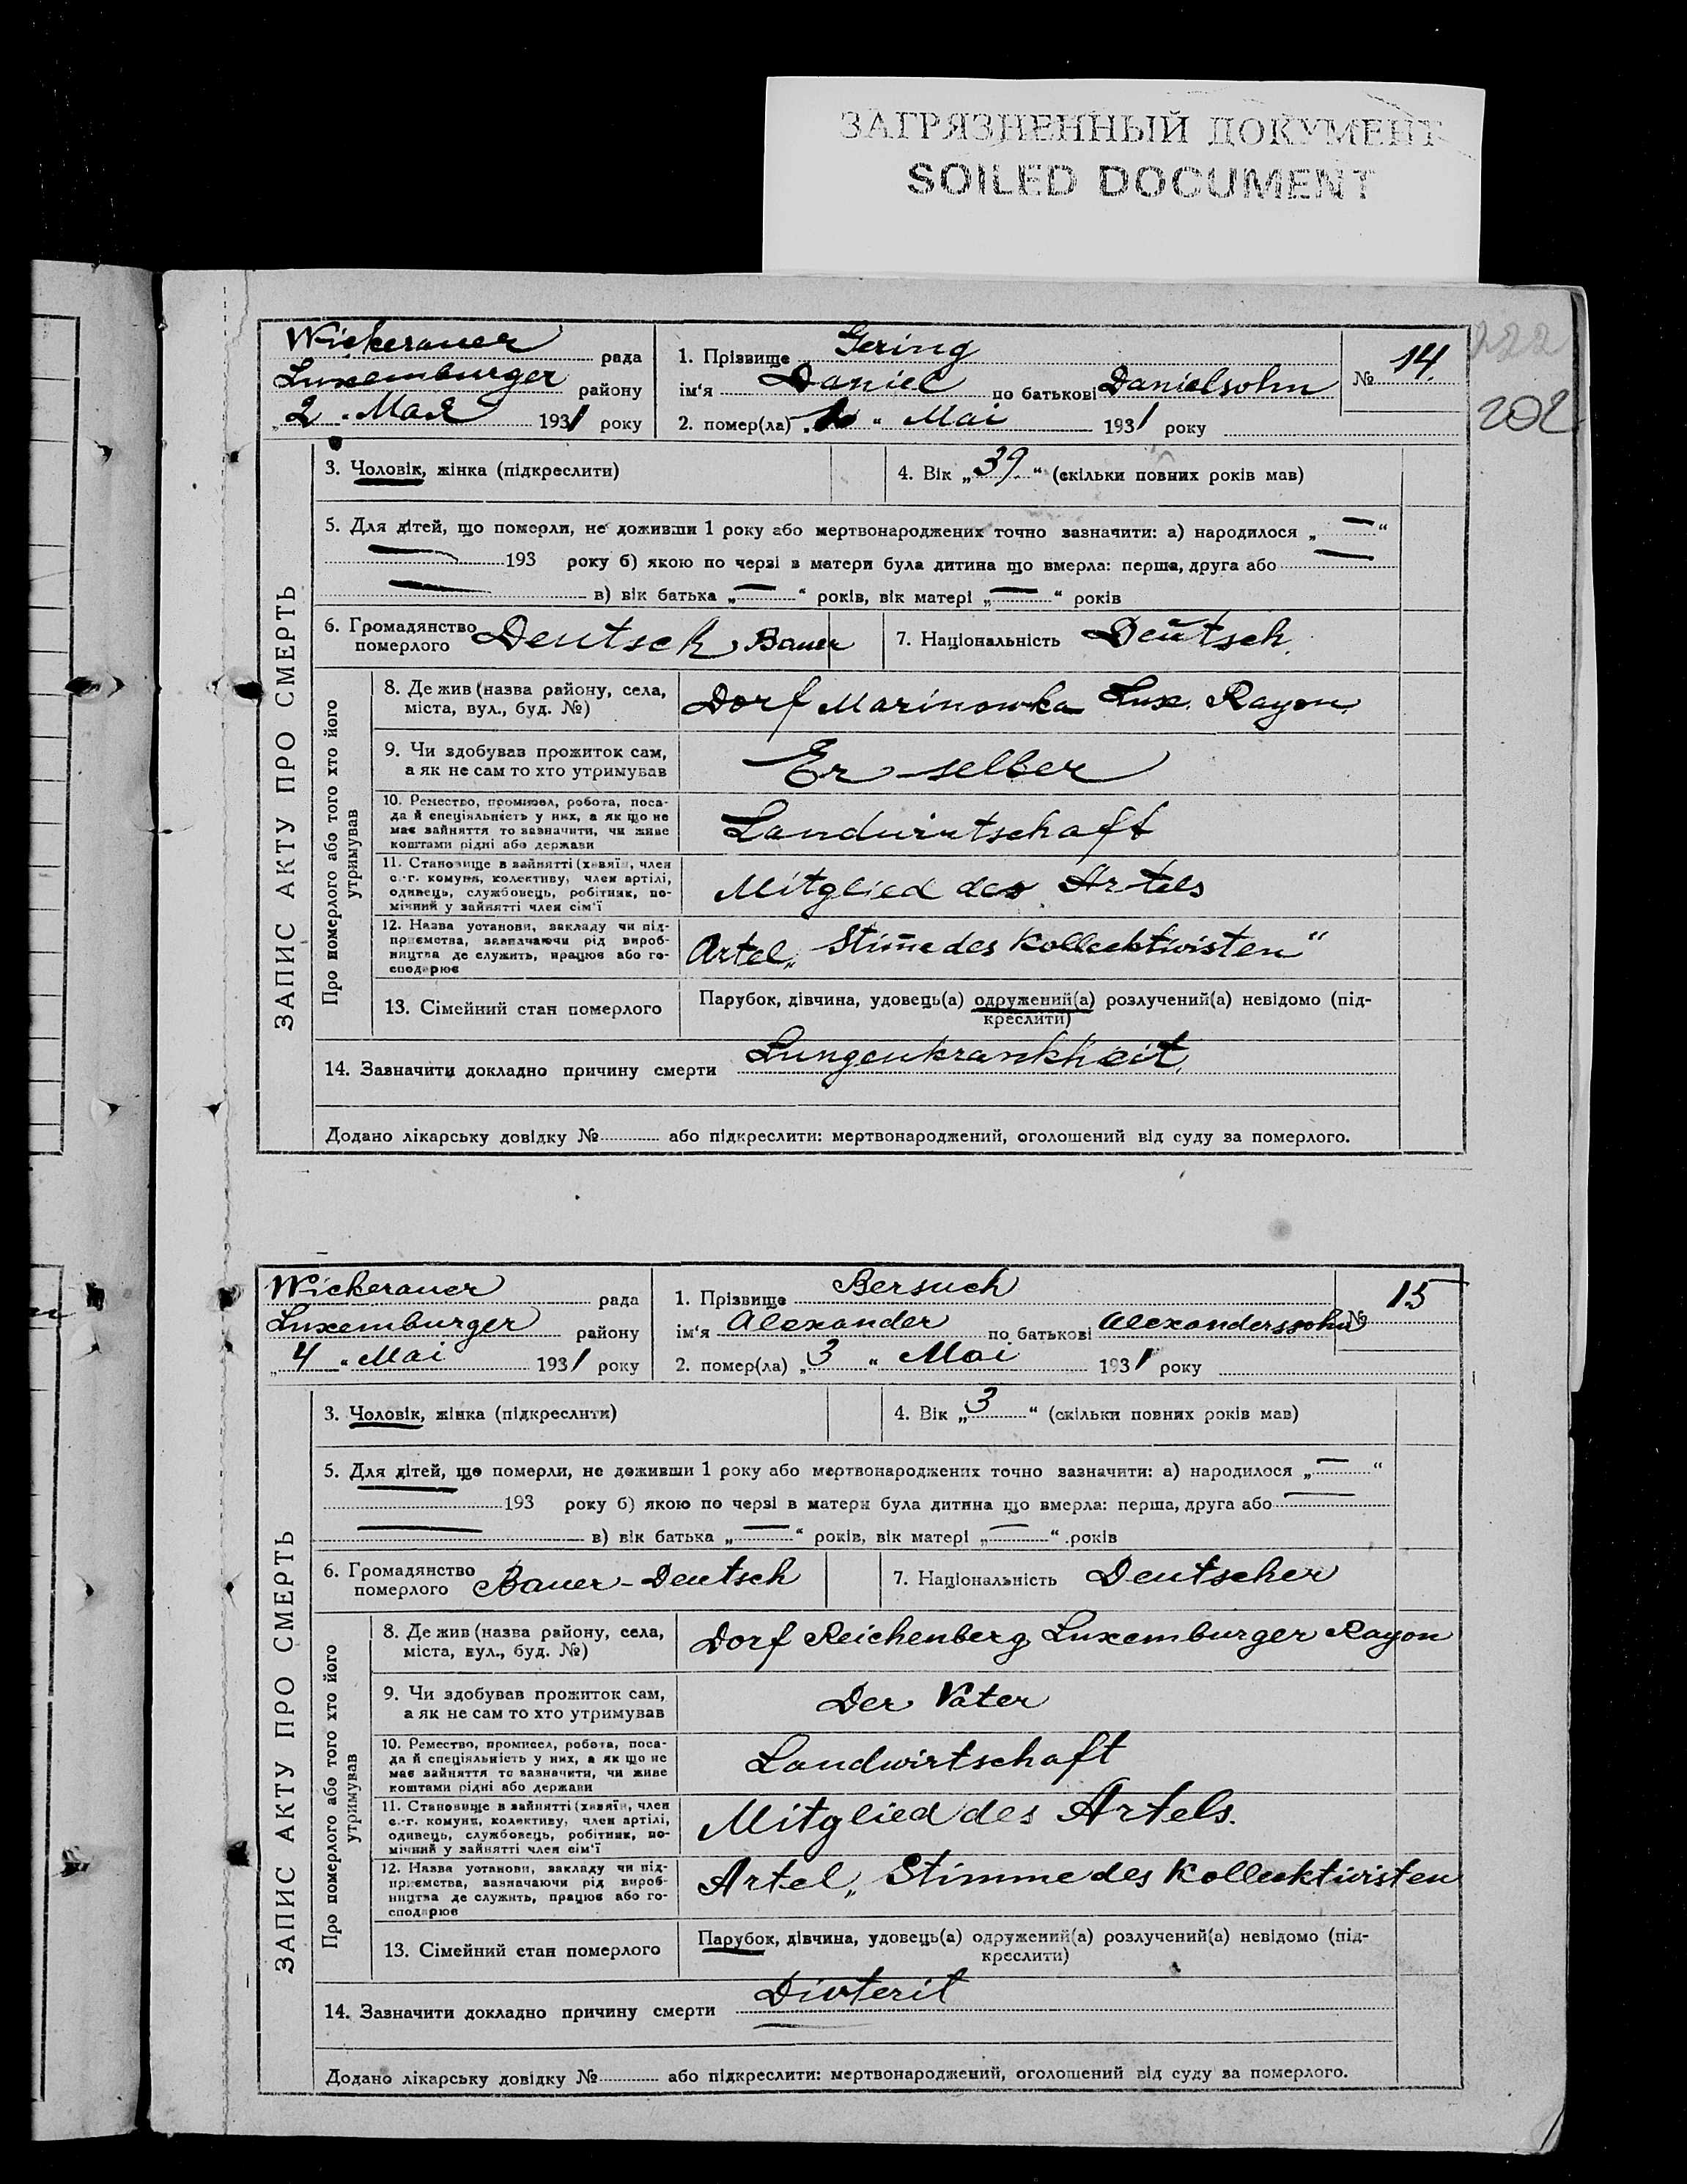 ЗАГРЯЗНЕННЫЙ ДОКУМЕНТ
SOILED DOCUMENT
222
202
ЗАПИС АКТУ ПРО СМЕРТЬ
Wickerauer рада
Luxemburger району
„2 “ Мая 1931 року
1. Прізвище Gering
ім'я Daniel по батькові Danielsohn
2. помер(ла) „ “ Mai 1931 року
№ 14.
3. Чоловік, жінка (підкреслити)
4. Вік „39.“ (скільки повних років мав)
5. Для дітей, що померли, не доживши 1 року або мертвонароджених точно зазначити: а) народилося „—“
— 193 року б) якою по черзі в матери була дитина що вмерла: перша, друга або —
— в) вік батька „—“ років, вік матері „—“ років
6. Громадянство померлого Deutsch, Bauer
7. Національність Deutsch.
Про померлого або того хто його утримував
8. Де жив (назва району, села,
міста, вул., буд. №)
Dorf Marinowka Lux. Rayon.
9. Чи здобував прожиток сам,
а як не сам то хто утримував
Er selber
10. Ремество, промисел, робота, поса-
да й спеціяльність у них, а як що не
має зайняття то зазначити, чи живе
коштами рідні або держави
Landwirtschaft
11. Становище в зайнятті (хазяїн, член
с.-г. комуни, колективу, член артілі,
одинець, службовець, робітник, по-
мічний у зайнятті член сім'ї
Mitglied des Artels
12. Назва установи, закладу чи під-
приємства, зазначаючи рід вироб-
ництва де служить, працює або го-
сподарює
Artel „Stim̄e des Kollecktwisten“
13. Сімейний стан померлого
Парубок, дівчина, удовець(а) одружений(а) розлучений(а) невідомо (під-
креслити)
14. Зазначити докладно причину смерти Lungenkrankheit.
Додано лікарську довідку № або підкреслити: мертвонароджений, оголошений від суду за померлого.
ЗАПИС АКТУ ПРО СМЕРТЬ
Wickerauer рада
Luxemburger району
„4 “ Mai 1931 року
1. Прізвище Bersuch
ім'я Alexander по батькові Alexanderssohn
2. помер(ла) „3 “ Mai 1931 року
№ 15
3. Чоловік, жінка (підкреслити)
4. Вік „3“ (скільки повних років мав)
5. Для дітей, що померли, не доживши 1 року або мертвонароджених точно зазначити: а) народилося „—“
193 року б) якою по черзі в матери була дитина що вмерла: перша, друга або —
— в) вік батька „—“ років, вік матері „—“ років
6. Громадянство померлого Bauer-Deutsch
7. Національність Deutscher
Про померлого або того хто його утримував
8. Де жив (назва району, села,
міста, вул., буд. №)
Dorf Reichenberg Luxemburger Rayon
9. Чи здобував прожиток сам,
а як не сам то хто утримував
Der Vater
10. Ремество, промисел, робота, поса-
да й спеціяльність у них, а як що не
має зайняття то зазначити, чи живе
коштами рідні або держави
Landwirtschaft
11. Становище в зайнятті (хазяїн, член
с.-г. комуни, колективу, член артілі,
одинець, службовець, робітник, по-
мічний у зайнятті член сім'ї
Mitglied des Artels.
12. Назва установи, закладу чи під-
приємства, зазначаючи рід вироб-
ництва де служить, працює або го-
сподарює
Artel „Stimme des Kollecktivisten
13. Сімейний стан померлого
Парубок, дівчина, удовець(а) одружений(а) розлучений(а) невідомо (під-
креслити)
14. Зазначити докладно причину смерти Divterit
Додано лікарську довідку № або підкреслити: мертвонароджений, оголошений від суду за померлого.